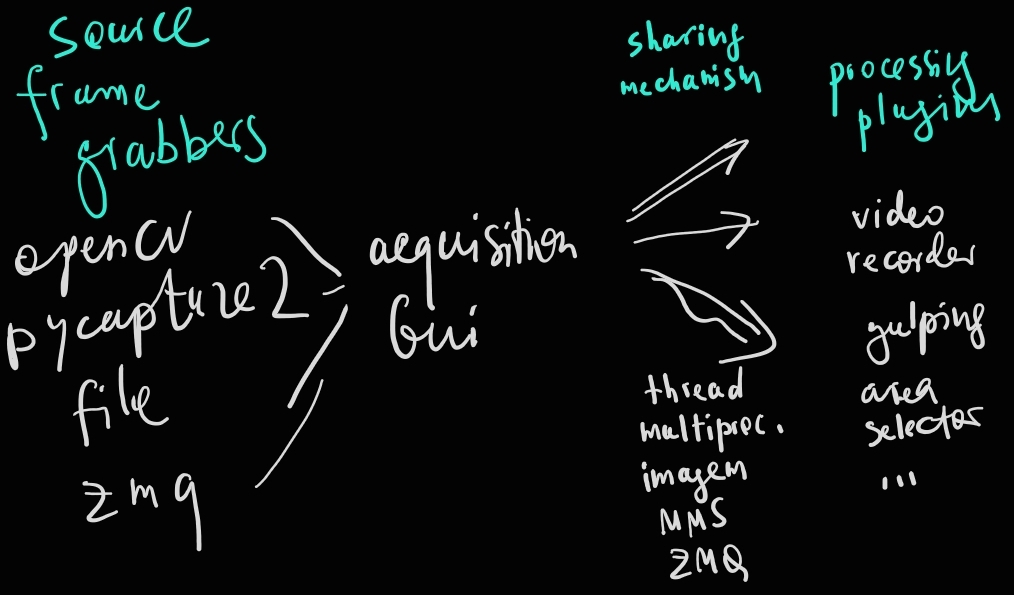 source
frame
grabbers
openCV
pycapture2
file
zmq
acquisition
Gui
sharing
mechanism
thread
multiproc.
imagem
MMS
ZMQ
processing
plugins
video
recorder
gulping
area
selector
...